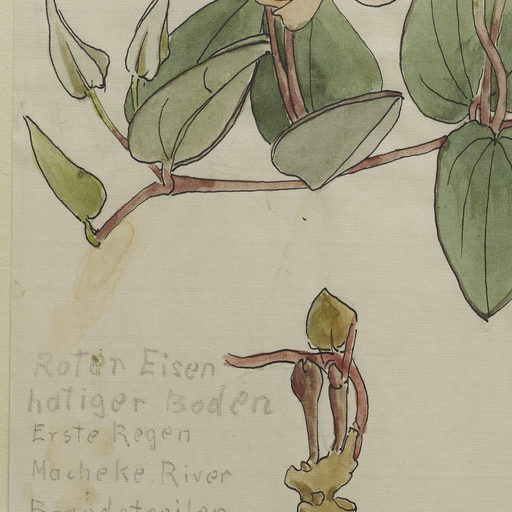 Roter Eisen
hatiger Boden
Erste Regen
Macheke River